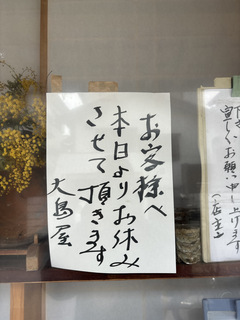 お客様へ
本日よりお休み
させて頂きます
大島屋
宜しくお願い申し上げます
（店主）